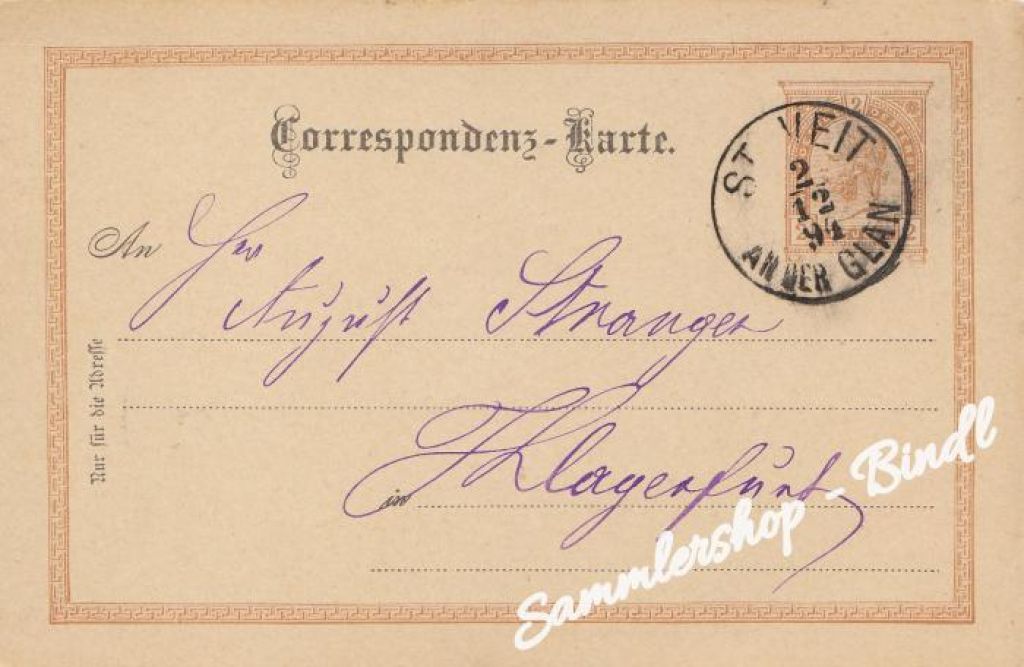 Correspondenz-Karte.
ST. VEIT
AN DER GLAN
An Herr
August Stranger
in Klagenfurt
Nur für die Adresse
Sammlershop - Bindl